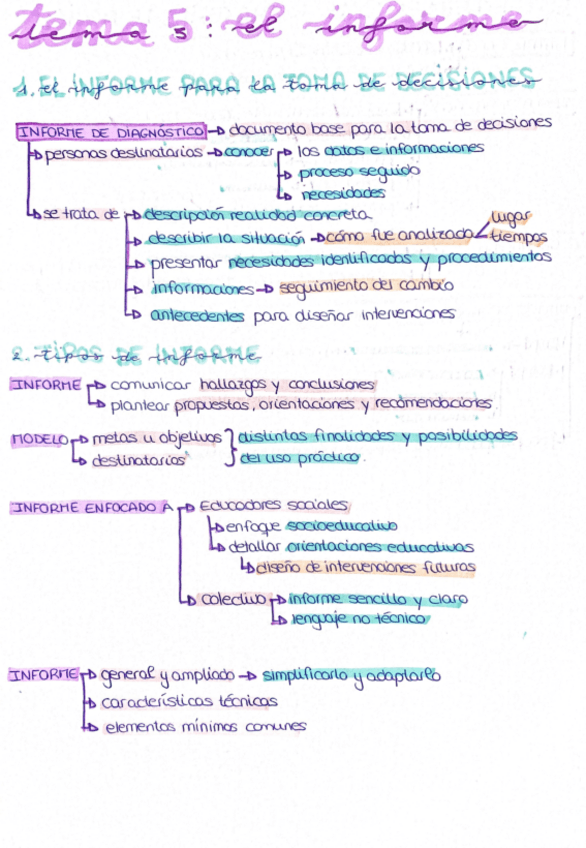 tema 5: el informe
1. el informe para la toma de decisiones
INFORME DE DIAGNÓSTICO → documento base para la toma de decisiones
personas destinatarias → conocer → los datos e informaciones
→ proceso seguido
→ necesidades
se trata de → descripción realidad concreta
lugar
→ describir la situación → cómo fue analizada
tiempos
→ presentar necesidades identificadas y procedimientos
→ informaciones → seguimiento del cambio
→ antecedentes para diseñar intervenciones
2. tipos de informe
INFORME → comunicar hallazgos y conclusiones
→ plantear propuestas, orientaciones y recomendaciones
MODELO → metas u objetivos } distintas finalidades y posibilidades
→ destinatarios } del uso práctico.
INFORME ENFOCADO A → Educadores sociales
→ enfoque socioeducativo
→ detallar orientaciones educativas
→ diseño de intervenciones futuras
→ colectivo → informe sencillo y claro
→ lenguaje no técnico
INFORME → general y ampliado → simplificarlo y adaptarlo
→ características técnicas
→ elementos mínimos comunes